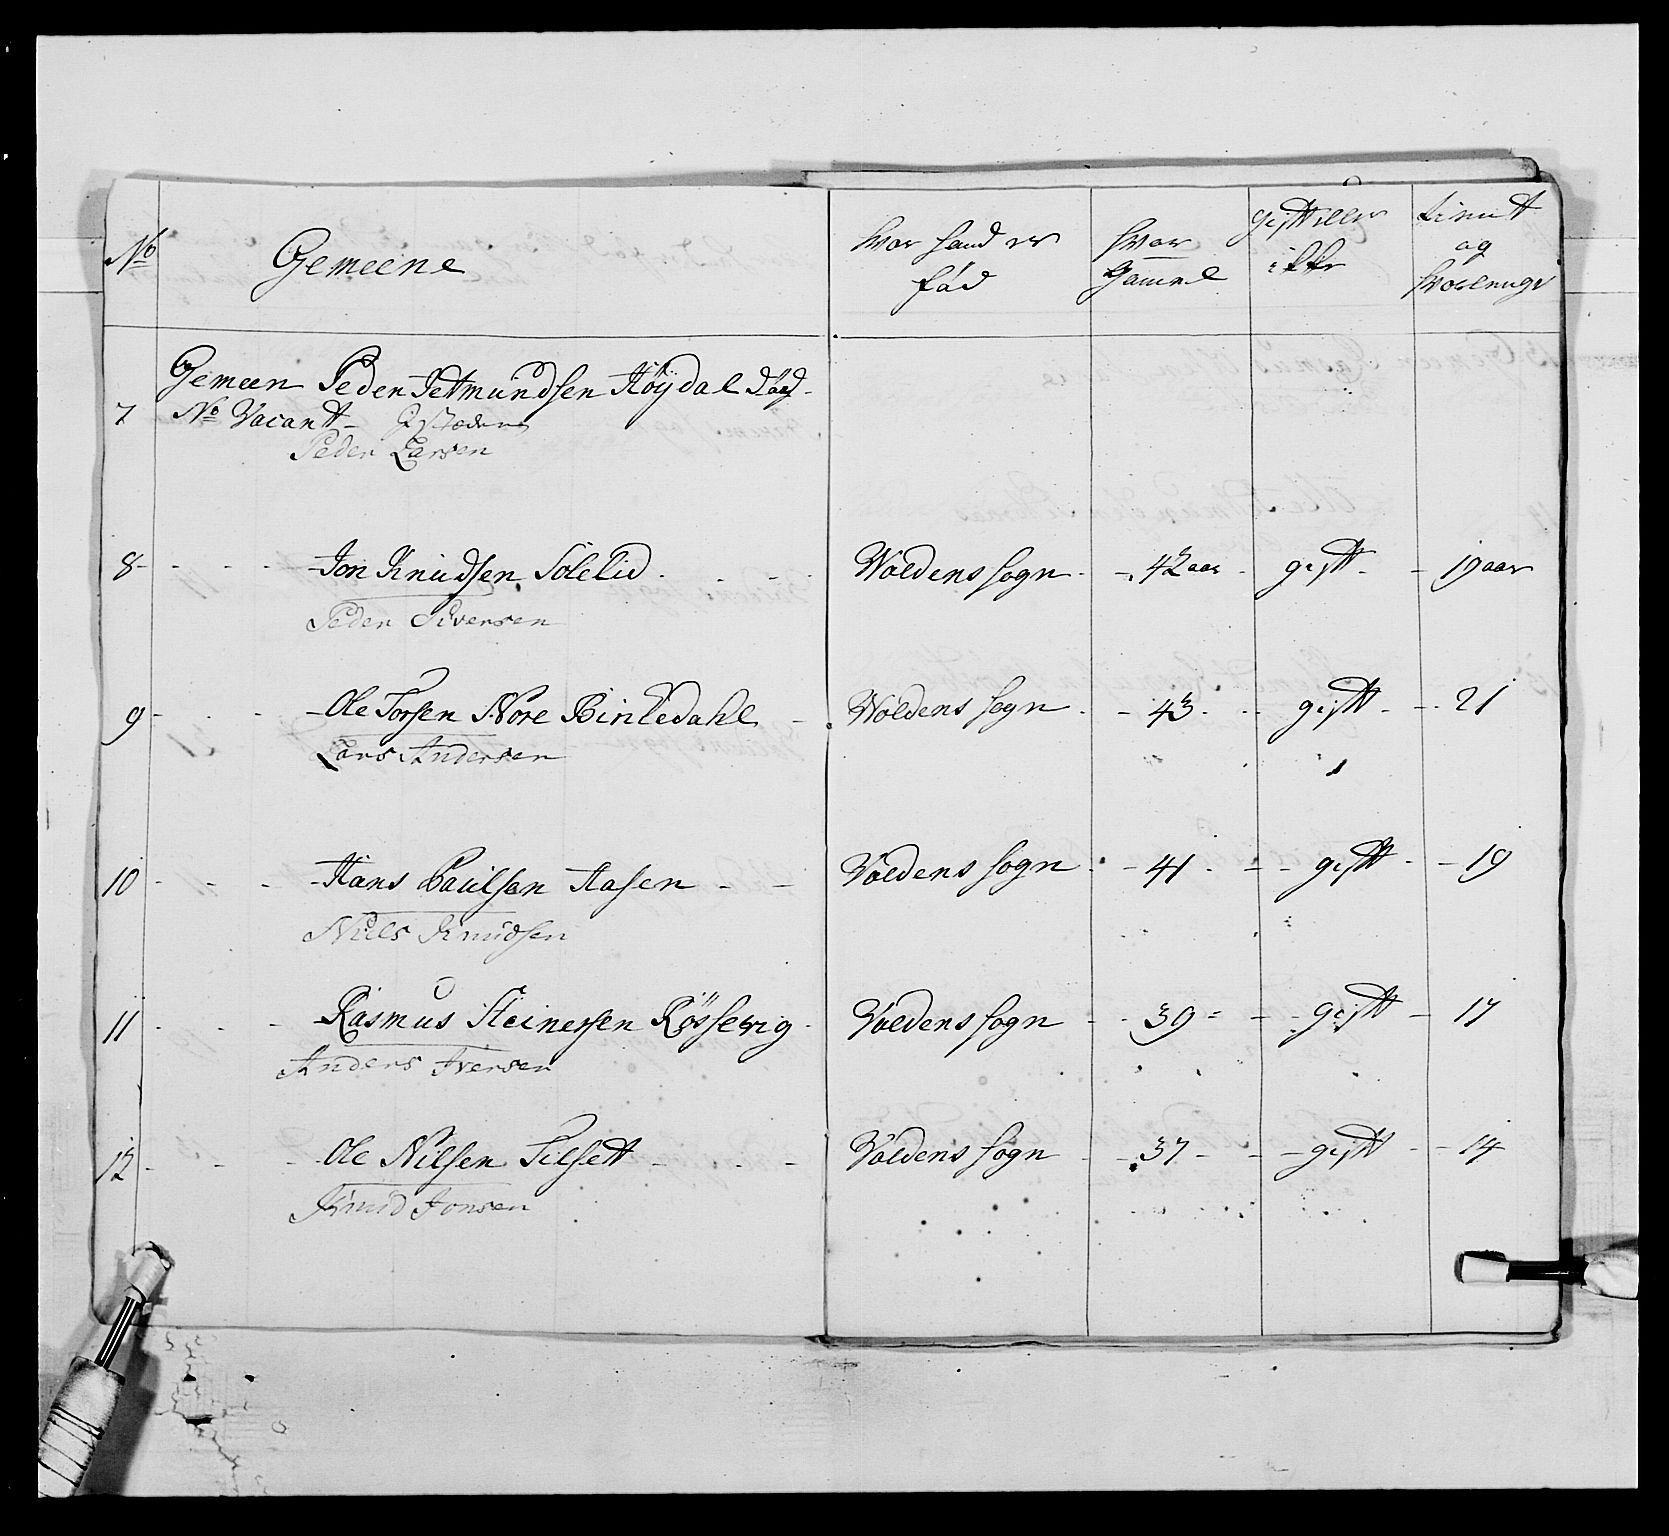 No Gemeene hvor hand er fød hvor Gammel gift eller ikke tient og hvorlenge
Gemeen Peder Petmundsen Höydal död
7 No Vacant
Peder Larsen
8 - - - - Jon Knudsen Solelid - - - Woldens sogn - - 42 aar - gift - - 19 aar
Peder Siversen
9 - - - - Ole Torsen Nore Birkedahl - Woldens sogn - - 43 - - gift - - 21
Lars Andersen
10 - - - - Hans Paulsen Aasen - - Voldens sogn - - 41 - - - gift - - 19
Niels Knudsen
11 - - - - Rasmus Steinersen Rössevig - Voldens sogn - - 39 - - - gift - 17
Anders Iversen
12 - - - - Ole Nilsen Silsett - - - Voldens sogn - - 37 - - - gift - - 14
Knud Jonsen